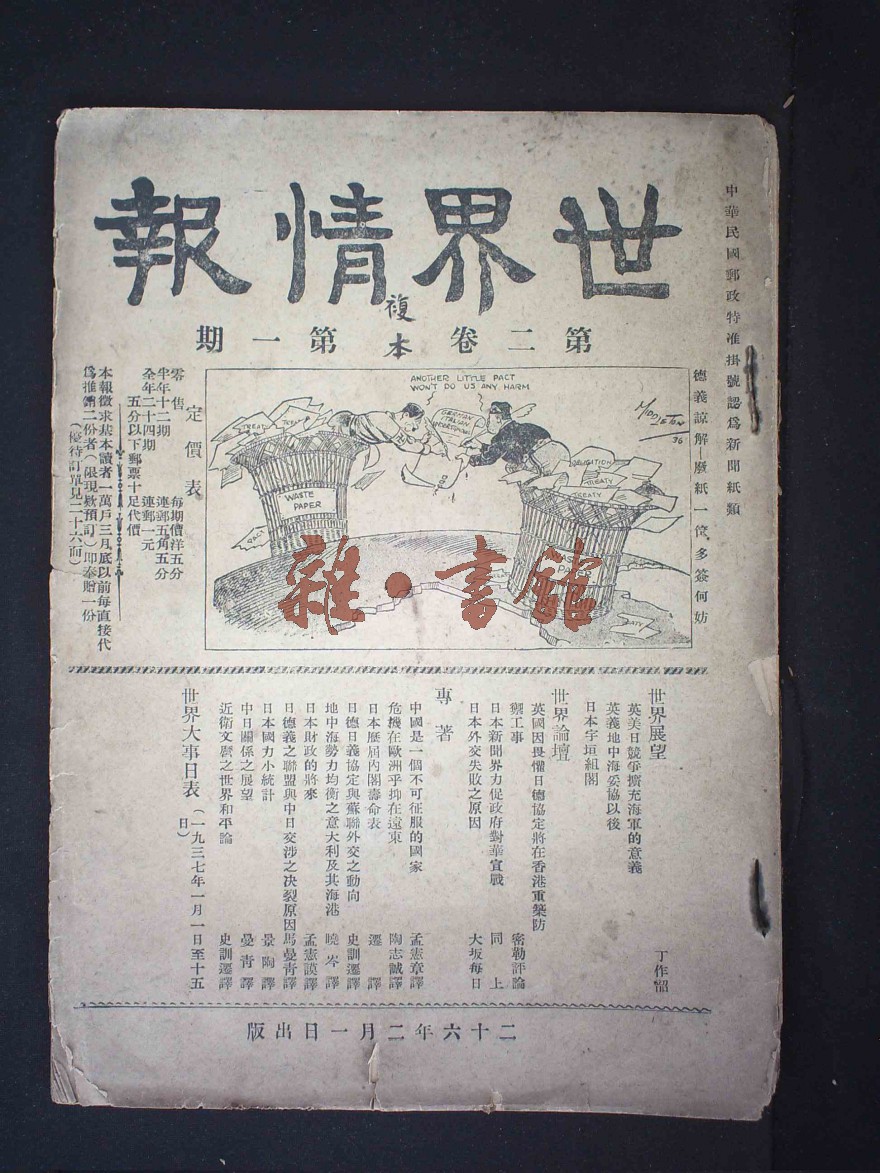 中華民國郵政特准掛號認爲新聞紙類
世界情報
複本
第二卷 第一期
德義諒解—廢紙一筐,多簽何妨
ANOTHER LITTLE PACT
WON'T DO US ANY HARM
GERMAN
ITALIAN
MIDDLETON
36
TREATY
TREATY
WASTE
PAPER
PACT
OBLIGATION
TREATY
TREATY
WASTE
PAPER
TREATY
雜·書館
定價表
零售 每期價洋五分
半年十二期 連郵五角五分
全年二十四期 連郵一元
五分以下郵票十足代價
本報徵求基本讀者一萬戶三月底以前每直接代
爲推銷二份者(限現欵預訂)即奉贈一份
(優待訂單見二十六面)
世界展望
英美日競爭擴充海軍的意義
英義地中海妥協以後
日本宇垣組閣
丁作韶
世界論壇
英國因畏懼日德協定將在香港重築防
禦工事 密勒評論
日本新聞界力促政府對華宣戰 同上
日本外交失敗之原因 大坂每日
專著
中國是一個不可征服的國家 孟憲章譯
危機在歐洲乎抑在遠東 陶志誠譯
日本歷屆內閣壽命表 遷譯
日德日義協定與蘇聯外交之動向 史訓遷譯
地中海勢力均衡之意大利及其海港 曉岑譯
日本財政的將來 孟憲謨譯
日德義之聯盟與中日交涉之決裂原因 馬曼青譯
日本國力小統計 景陶譯
中日關係之展望 曼青譯
近衛文麿之世界和平論 史訓遷譯
世界大事日表(一九三七年一月一日至十五
日)
二十六年二月一日出版